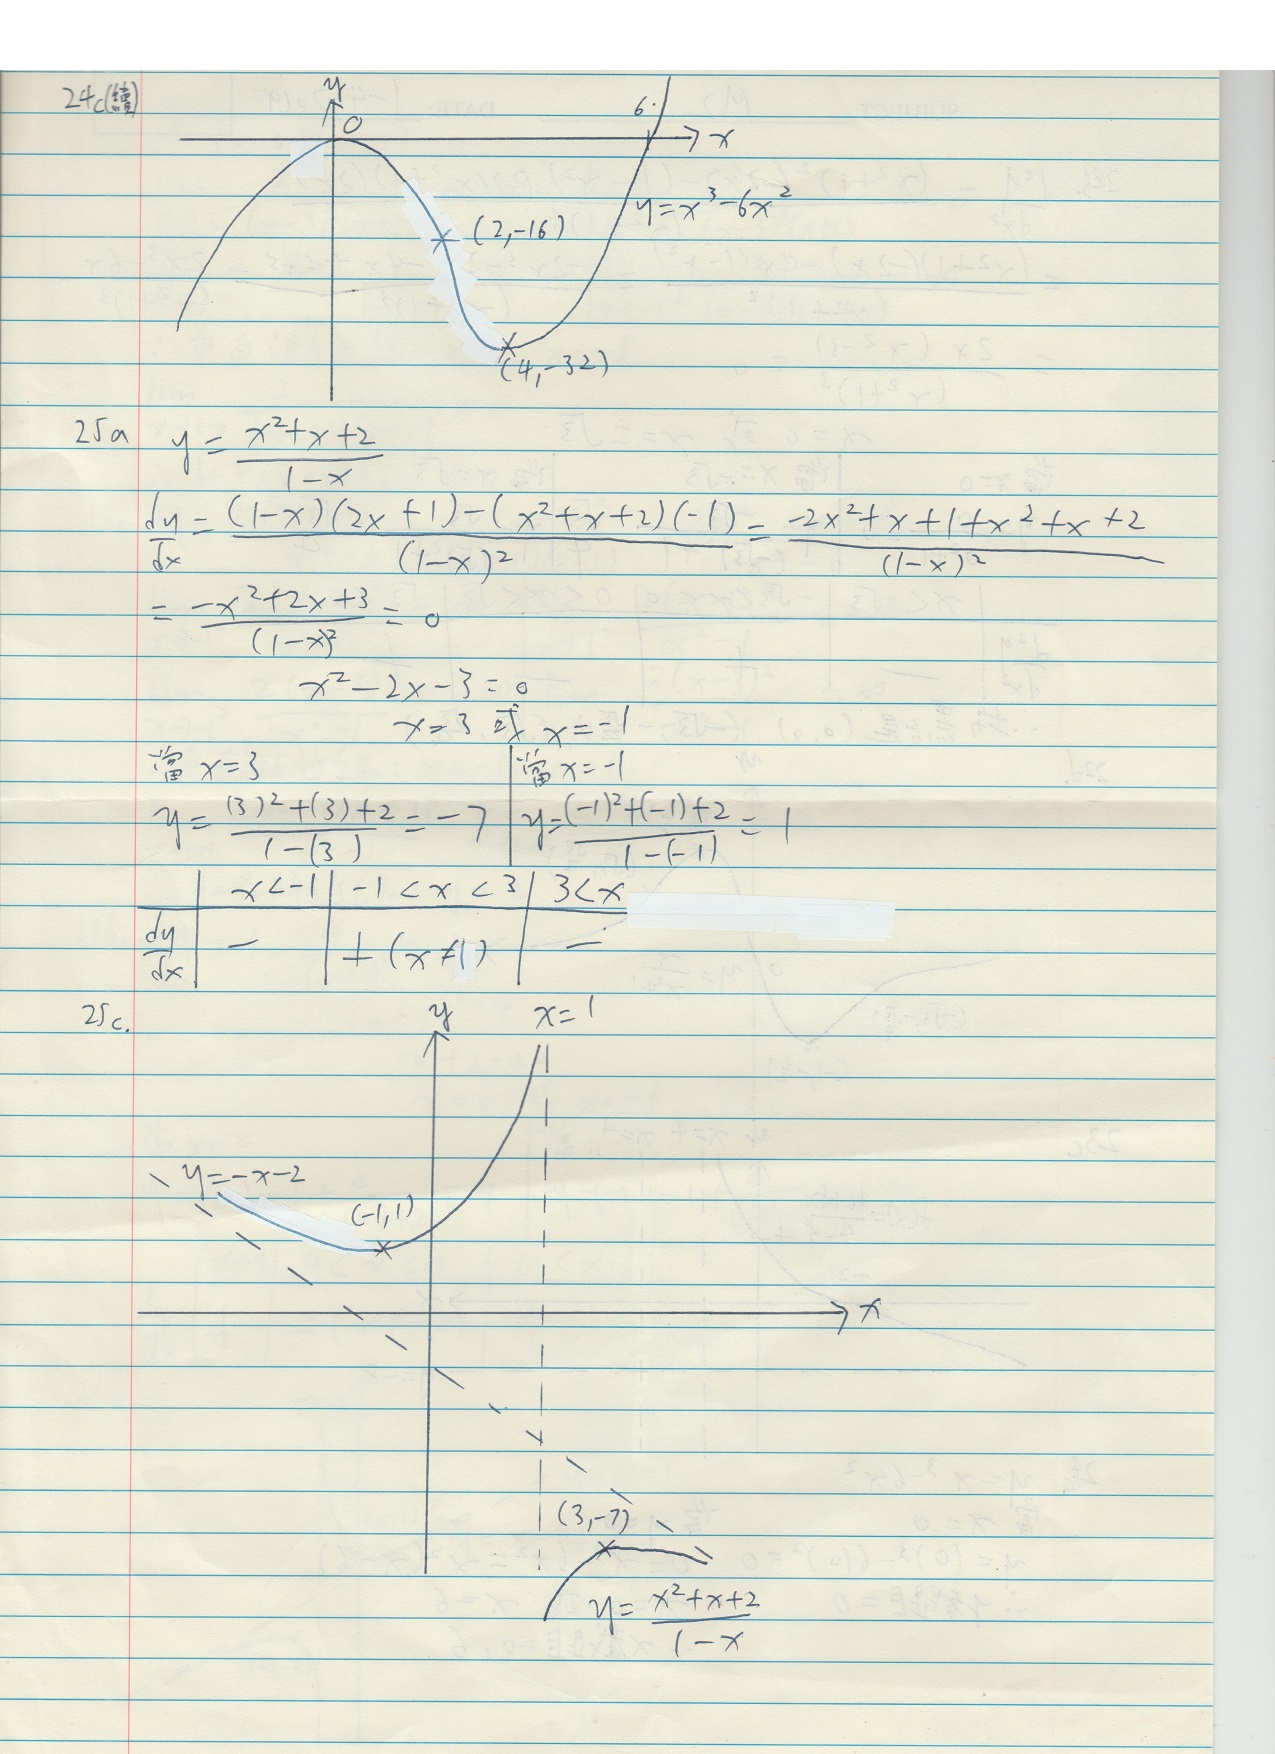 24c(續)
y
0
6
x
y=x³-6x²
(2,-16)
(4,-32)
25a y = (x²+x+2)/(1-x)
dy/dx = ((1-x)(2x+1)-(x²+x+2)(-1))/(1-x)² = (-2x²+x+1+x²+x+2)/(1-x)²
= (-x²+2x+3)/(1-x)² = 0
x²-2x-3=0
x=3 或 x=-1
當 x=3 | 當 x=-1
y = ((3)²+(3)+2)/(1-(3)) = -7 | y = ((-1)²+(-1)+2)/(1-(-1)) = 1
| x<-1 | -1<x<3 | 3<x
dy/dx | - | + (x≠1) | -
25c.
y
x=1
y=-x-2
(-1,1)
x
(3,-7)
y = (x²+x+2)/(1-x)